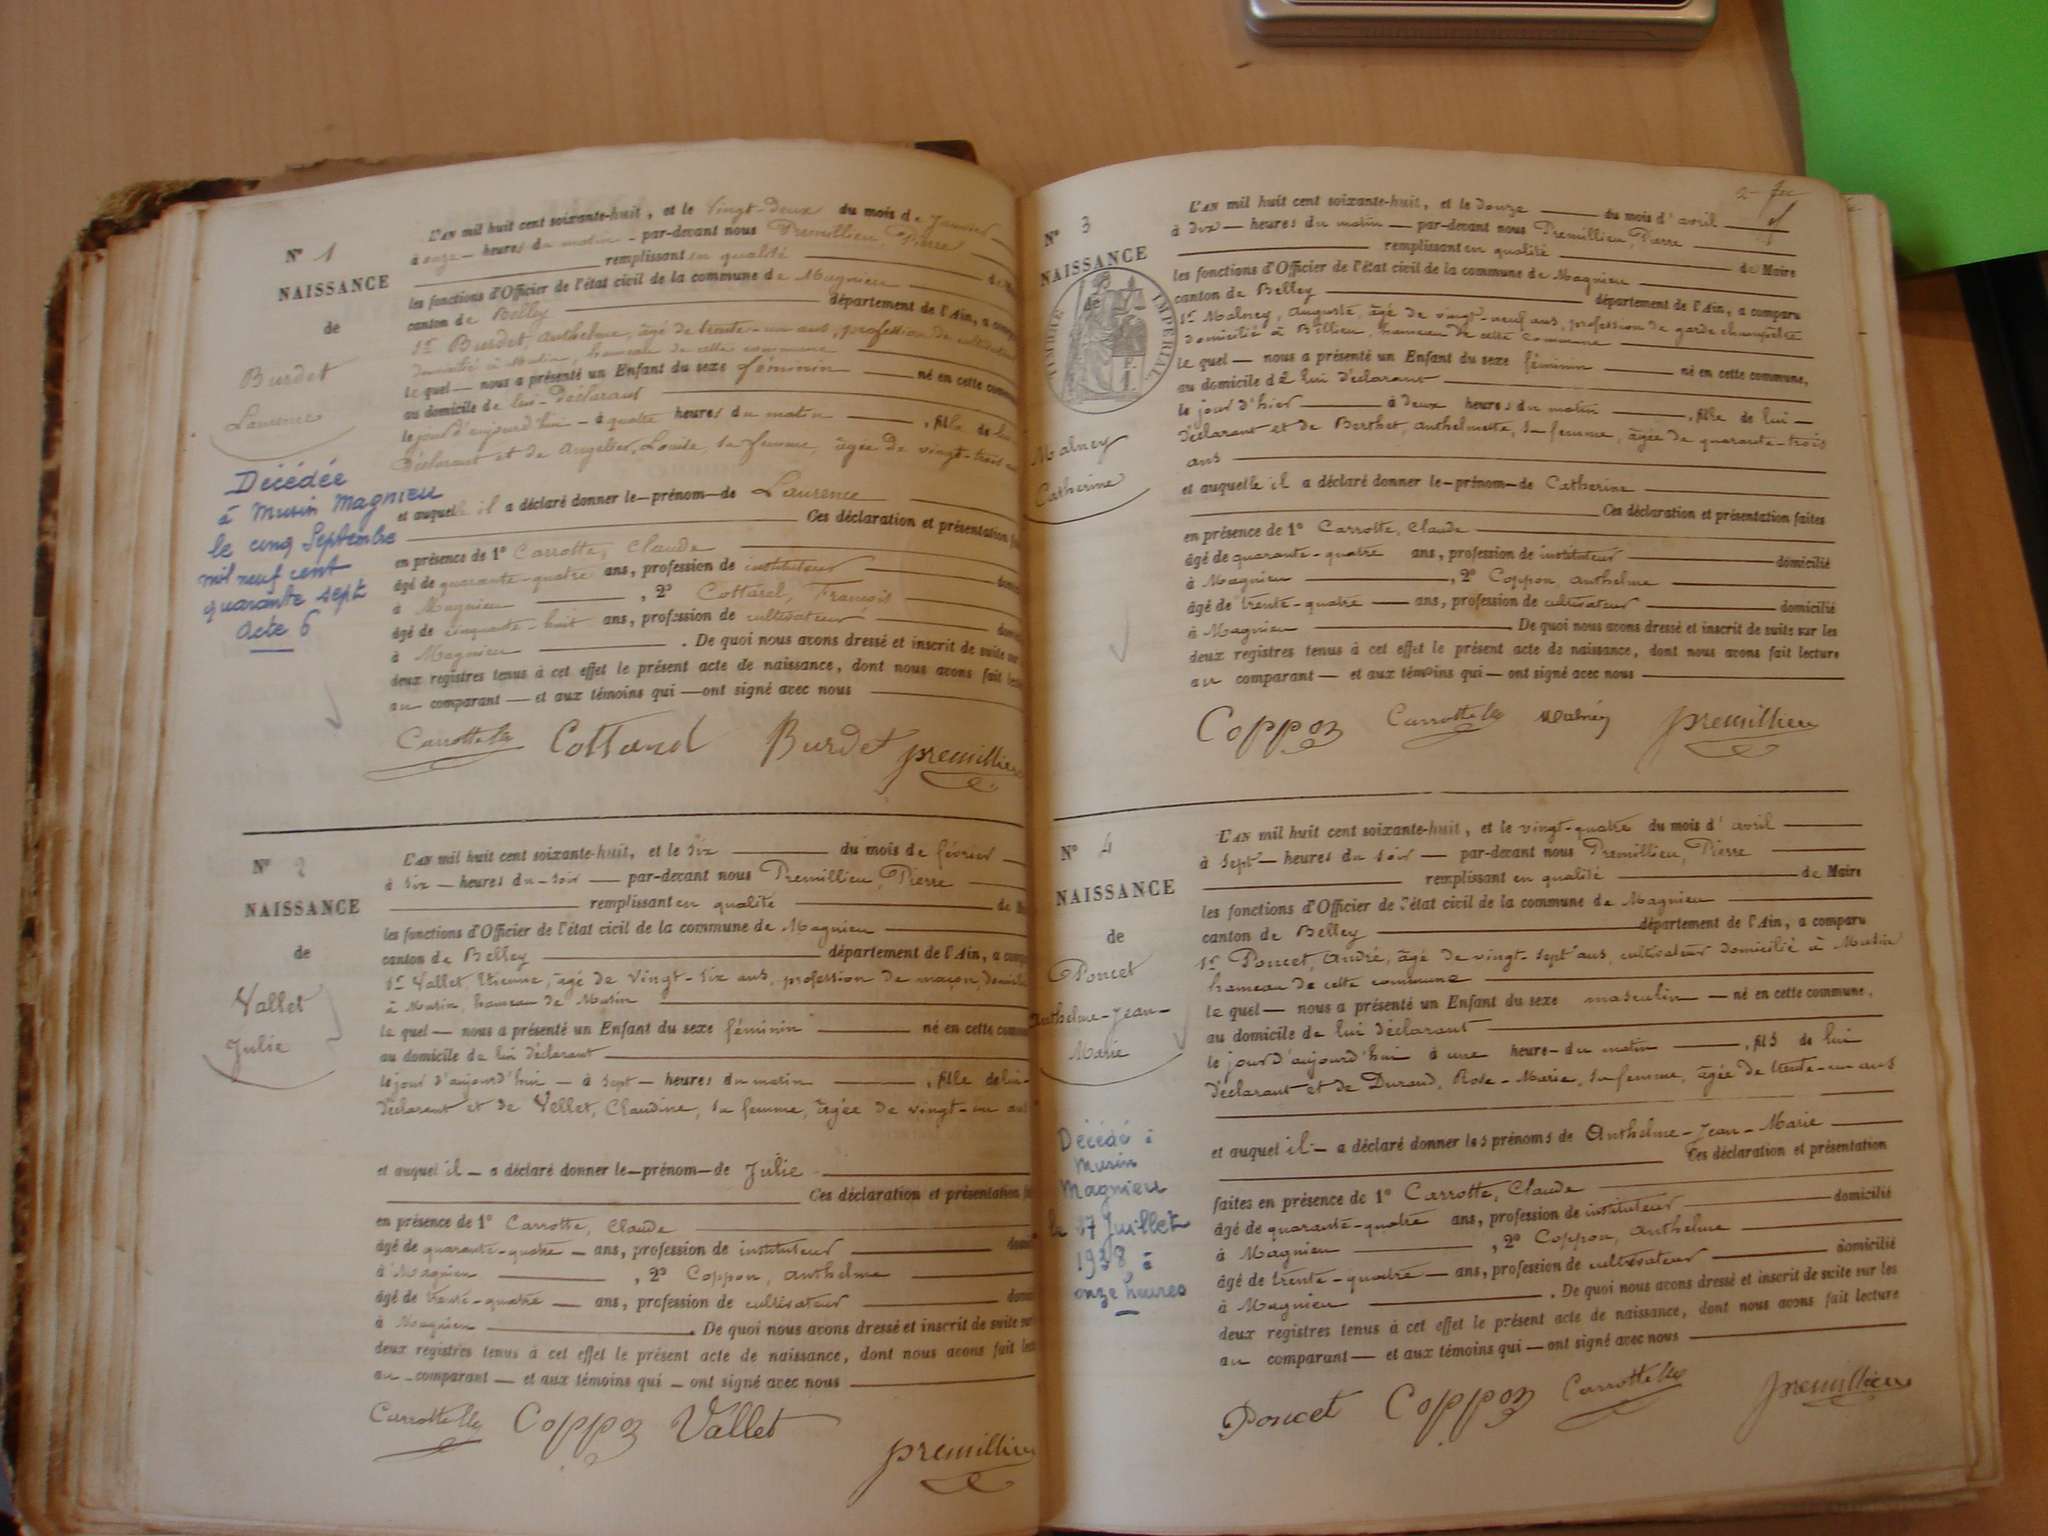 N° 1
NAISSANCE
de
Burdet
Laurence
Décédée
à Musin Magnieu
le cinq Septembre
mil neuf cent
quarante sept
Acte 6
L'AN mil huit cent soixante-huit, et le vingt-deux du mois de Janvier
à onze heures du matin par-devant nous Premillieu Pierre
remplissant en qualité
les fonctions d'Officier de l'état civil de la commune de Magnieu
canton de Belley département de l'Ain, a
1er Burdet Anthelme, âgé de trente-un ans, profession de
domicilié à Musin, hameau de cette commune
le quel nous a présenté un Enfant du sexe féminin né en cette
au domicile de lui déclarant
le jour d'aujourd'hui à quatre heures du matin, fille de lui
déclarant et de Angelier, Louise, sa femme, âgée de vingt-trois
et auquel il a déclaré donner le prénom de Laurence
Ces déclaration et présentation
en présence de 1° Carrotte, Claude
âgé de quarante-quatre ans, profession de instituteur
à Magnieu, 2° François
âgé de cinquante-huit ans, profession de cultivateur
à Magnieu. De quoi nous avons dressé et inscrit de suite sur
deux registres tenus à cet effet le présent acte de naissance, dont nous avons fait
au comparant et aux témoins qui ont signé avec nous
Carrotte Cottard Burdet premillieu
N° 2
NAISSANCE
de
Vallet
Julie
L'AN mil huit cent soixante-huit, et le six du mois de février
à six heures du soir par-devant nous Premillieu, Pierre
remplissant en qualité de
les fonctions d'Officier de l'état civil de la commune de Magnieu
canton de Belley département de l'Ain, a
1er Vallet, Etienne, âgé de vingt-six ans, profession de maçon,
à Musin, hameau de Musin
le quel nous a présenté un Enfant du sexe féminin né en cette
au domicile de lui déclarant
le jour d'aujourd'hui à sept heures du matin, fille de lui
déclarant et de Vellet, Claudine, sa femme, âgée de vingt-un ans
et auquel il a déclaré donner le prénom de Julie
Ces déclaration et présentation
en présence de 1° Carrotte, Claude
âgé de quarante-quatre ans, profession de instituteur
à Magnieu, 2° Coppon, anthelme
âgé de trente-quatre ans, profession de cultivateur
à Magnieu. De quoi nous avons dressé et inscrit de suite sur
deux registres tenus à cet effet le présent acte de naissance, dont nous avons fait
au comparant et aux témoins qui ont signé avec nous
Carrotte Coppon Vallet
premillieu
2
N° 3
NAISSANCE
de
TIMBRE IMPERIAL
Malney
Catherine
L'AN mil huit cent soixante-huit, et le douze du mois d'avril
à dix heures du matin par-devant nous Premillieu, Pierre
remplissant en qualité de Maire
les fonctions d'Officier de l'état civil de la commune de Magnieu
canton de Belley département de l'Ain, a comparu
1er Malney, Auguste, âgé de vingt-neuf ans, profession de garde champêtre
domicilié à Billieu, hameau de cette commune
le quel nous a présenté un Enfant du sexe féminin né en cette commune,
au domicile de lui déclarant
le jour d'hier à deux heures du matin, fille de lui
déclarant et de Berthet, anthelmette, sa femme, âgée de quarante-trois
ans
et auquelle il a déclaré donner le prénom de Catherine
Ces déclaration et présentation faites
en présence de 1° Carrotte, Claude
âgé de quarante-quatre ans, profession de instituteur domicilié
à Magnieu, 2° Coppon, anthelme
âgé de trente-quatre ans, profession de cultivateur domicilié
à Magnieu De quoi nous avons dressé et inscrit de suite sur les
deux registres tenus à cet effet le présent acte de naissance, dont nous avons fait lecture
au comparant et aux témoins qui ont signé avec nous
Coppon Carrotte Malney premillieu
N° 4
NAISSANCE
de
Poncet
Anthelme-Jean-
Marie
Décédé à
Musin
Magnieu
le 17 Juillet
1938, à
onze heures
L'AN mil huit cent soixante-huit, et le vingt-quatre du mois d'avril
à sept heures du soir par-devant nous Premillieu, Pierre
remplissant en qualité de Maire
les fonctions d'Officier de l'état civil de la commune de Magnieu
canton de Belley département de l'Ain, a comparu
1er Poncet, André, âgé de vingt-sept ans, cultivateur domicilié à Musin
hameau de cette commune
le quel nous a présenté un Enfant du sexe masculin né en cette commune,
au domicile de lui déclarant
le jour d'aujourd'hui à une heure du matin, fils de lui
déclarant et de Durand, Rose-Marie, sa femme, âgée de trente-un ans
et auquel il a déclaré donner les prénoms de Anthelme-Jean-Marie
Ces déclaration et présentation
faites en présence de 1° Carrotte, Claude
âgé de quarante-quatre ans, profession de instituteur domicilié
à Magnieu, 2° Coppon, anthelme
âgé de trente-quatre ans, profession de cultivateur domicilié
à Magnieu. De quoi nous avons dressé et inscrit de suite sur les
deux registres tenus à cet effet le présent acte de naissance, dont nous avons fait lecture
au comparant et aux témoins qui ont signé avec nous
Poncet Coppon Carrotte premillieu